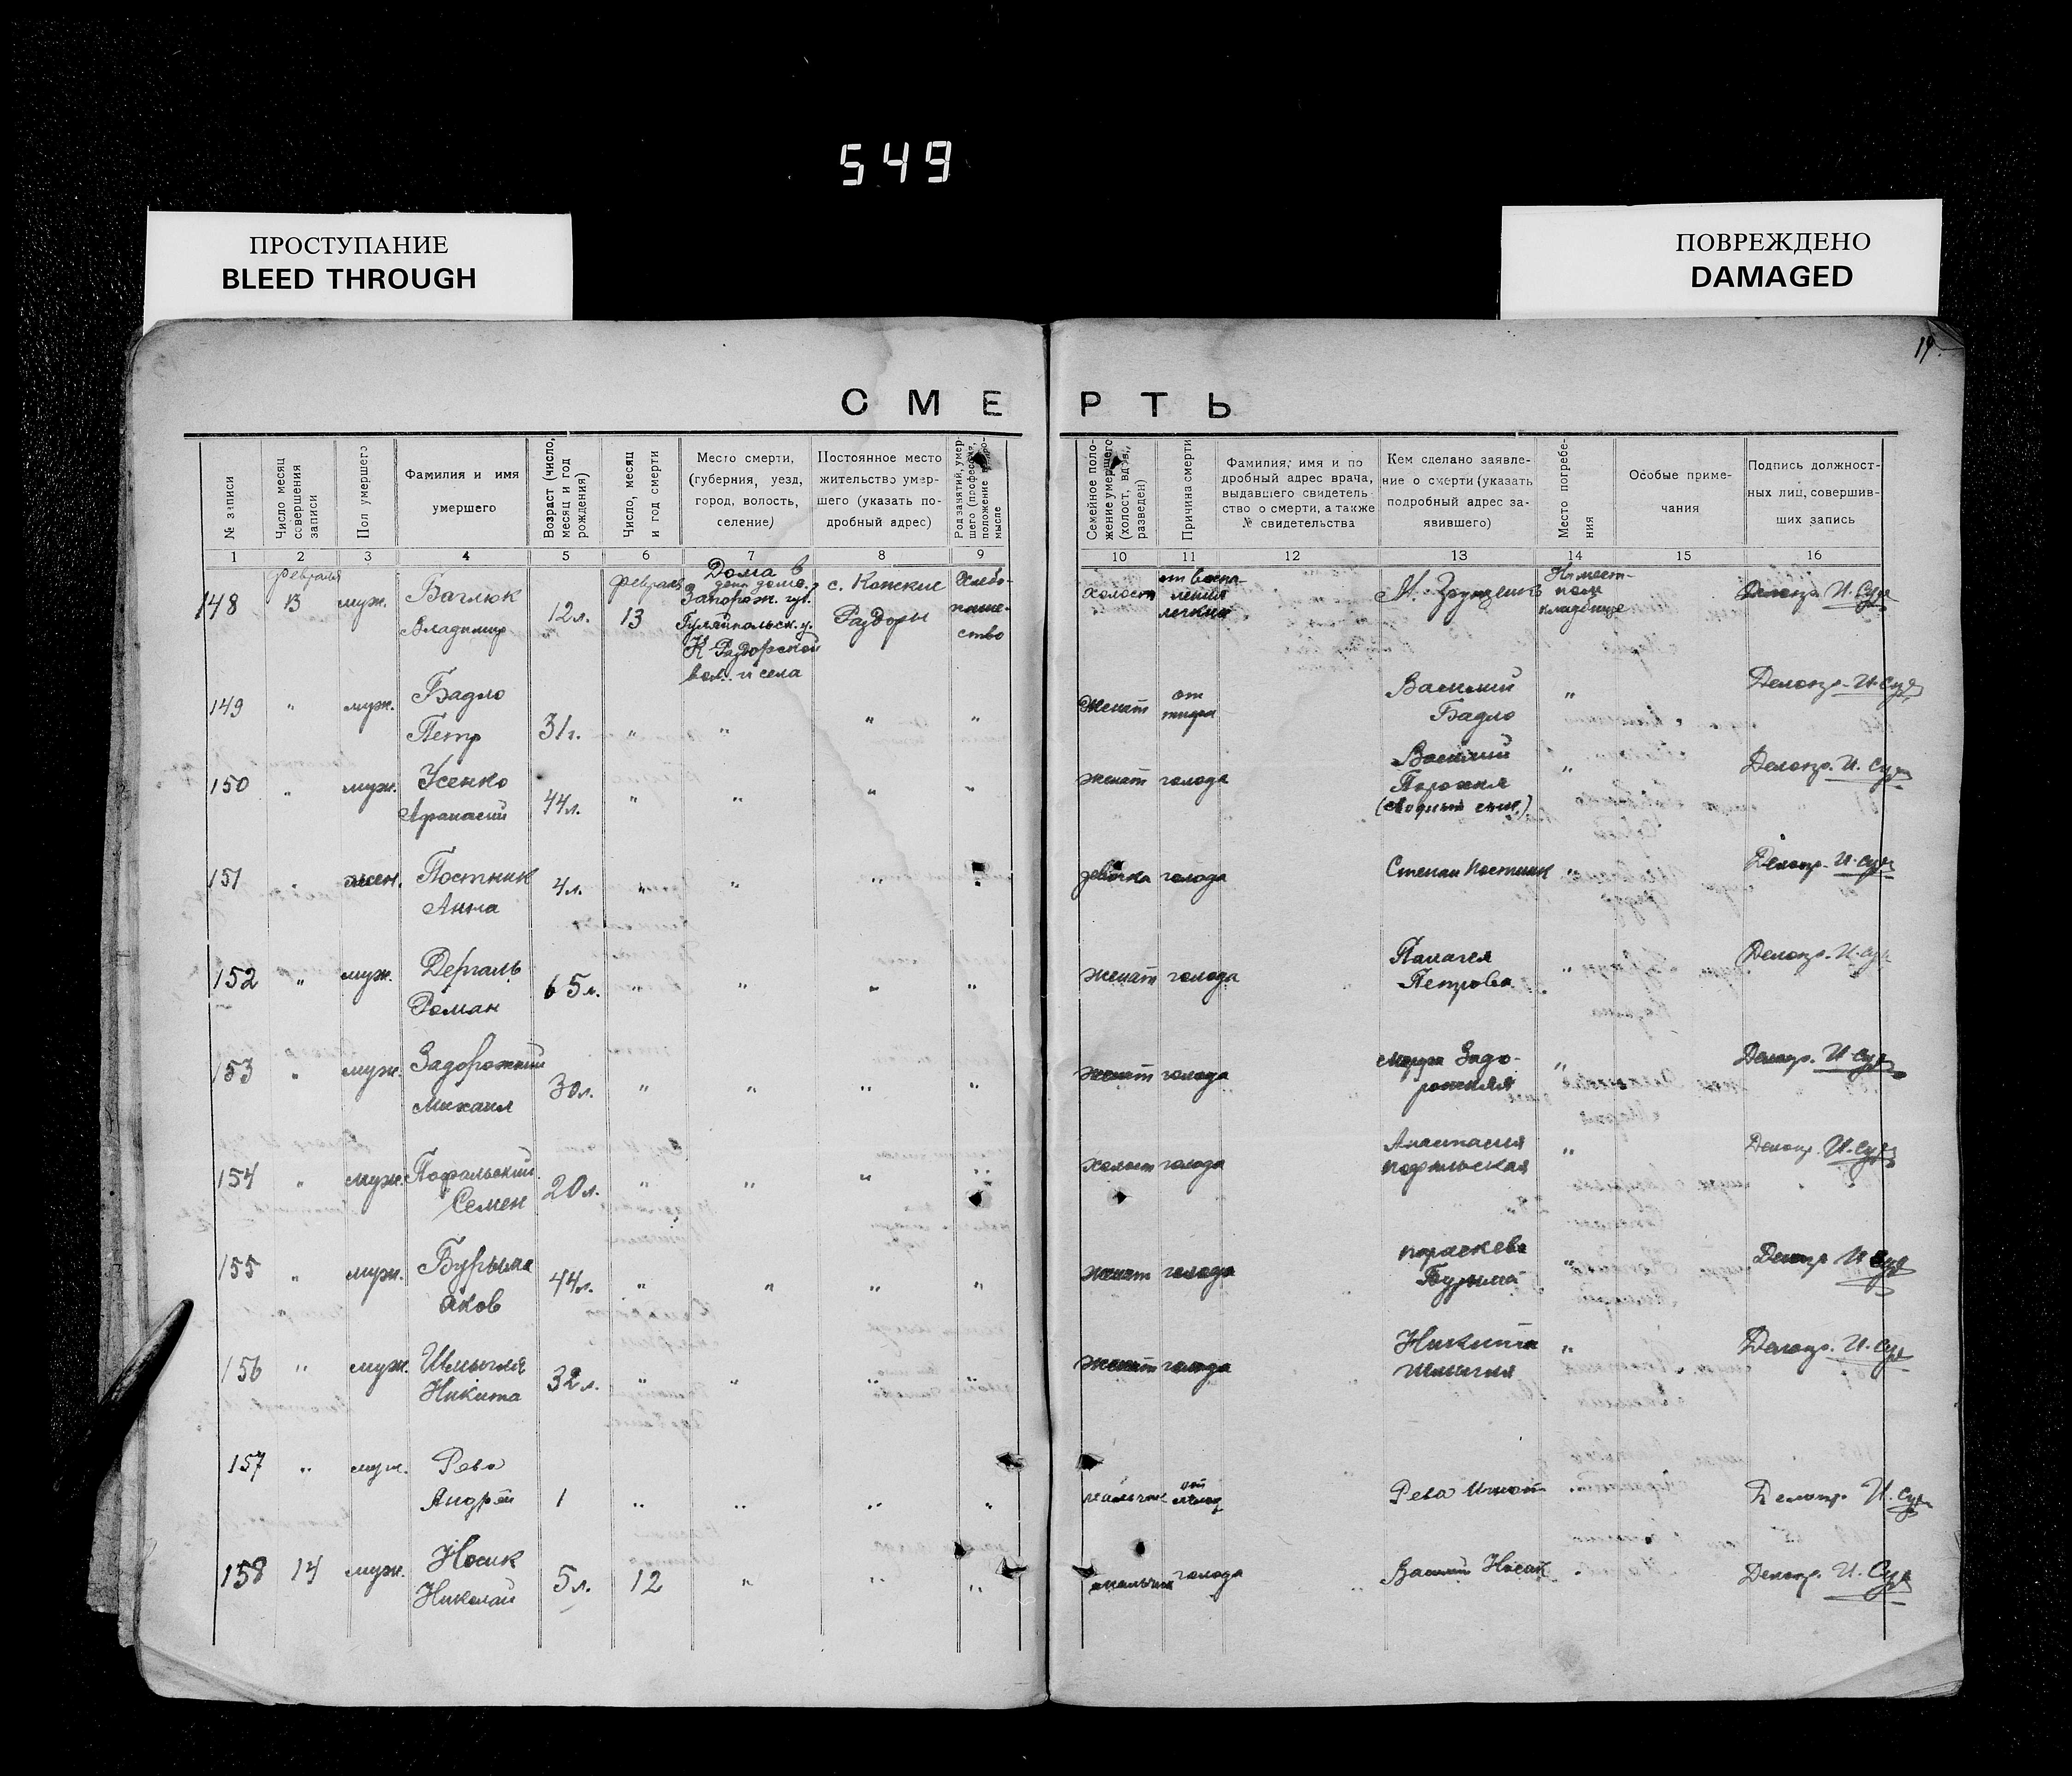 549
ПРОСТУПАНИЕ
BLEED THROUGH
ПОВРЕЖДЕНО
DAMAGED
19.
СМЕРТЬ
№ записи
Число месяц совершения записи
Пол умершего
Фамилия и имя умершего
Возраст (число, месяц и год рождения)
Число, месяц и год смерти
Место смерти, (губерния, уезд, город, волость, селение)
Постоянное место жительство умершего (указать подробный адрес)
Род занятий, умершего (профессия, положение в промысле
Семейное положение умершего (холост, вдов, разведен)
Причина смерти
Фамилия, имя и подробный адрес врача, выдавшего свидетельство о смерти, а также № свидетельства
Кем сделано заявление о смерти (указать подробный адрес заявившего)
Место погребения
Особые примечания
Подпись должностных лиц, совершивших запись
1 2 3 4 5 6 7 8 9 10 11 12 13 14 15 16
148 февраля 13 муж. Баглюк Владимир 12л. февраль 13 Дома в
Запорож. губ. Гуляйпольск. у. К Раздорской вол. и села с. Конские Раздоры Хлебопашество холост от воспаления легких М. На местном кладбище Делопр. И. Суд
149 " муж. Бадло Петр 31г. " " " " женат от тифа Василий Бадло " Делопр. И. Суд
150 " муж. Усенко Афанасий 44л. " " " " женат голода Василий " Делопр. И. Суд
151 " жен. Постник Анна 4л. " " " девочка голода Степан Постник " Делопр. И. Суд
152 " муж. Дергаль Роман 65л. " " " " женат голода Палагея Петрова " Делопр. И. Суд
153 " муж. Задорожний Михаил 30л. " " " " женат голода Марфа Задорожняя " Делопр. И. Суд
154 " муж. Семен 20л. " " " " холост голода Анастасия " Делопр. И. Суд
155 " муж. Бурыма Яков 44л. " " " " женат голода Параскева Бурыма " Делопр. И. Суд
156 " муж. Шмыгля Никита 32л. " " " " женат голода Никита Шмыгля " Делопр. И. Суд
157 " муж. Рева Андрей 1 " " " " мальчик от голод Рева Игнат Делопр. И. Суд
158 14 муж. Носик Николай 5л. 12 " " " мальчик голода Василий Носик " Делопр. И. Суд